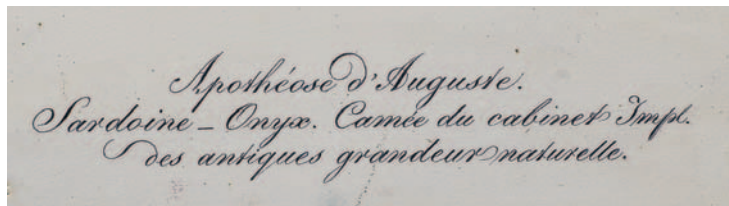 Apothéose d'Auguste.
Sardoine – Onyx. Camée du cabinet Impl.
des antiques grandeur naturelle.